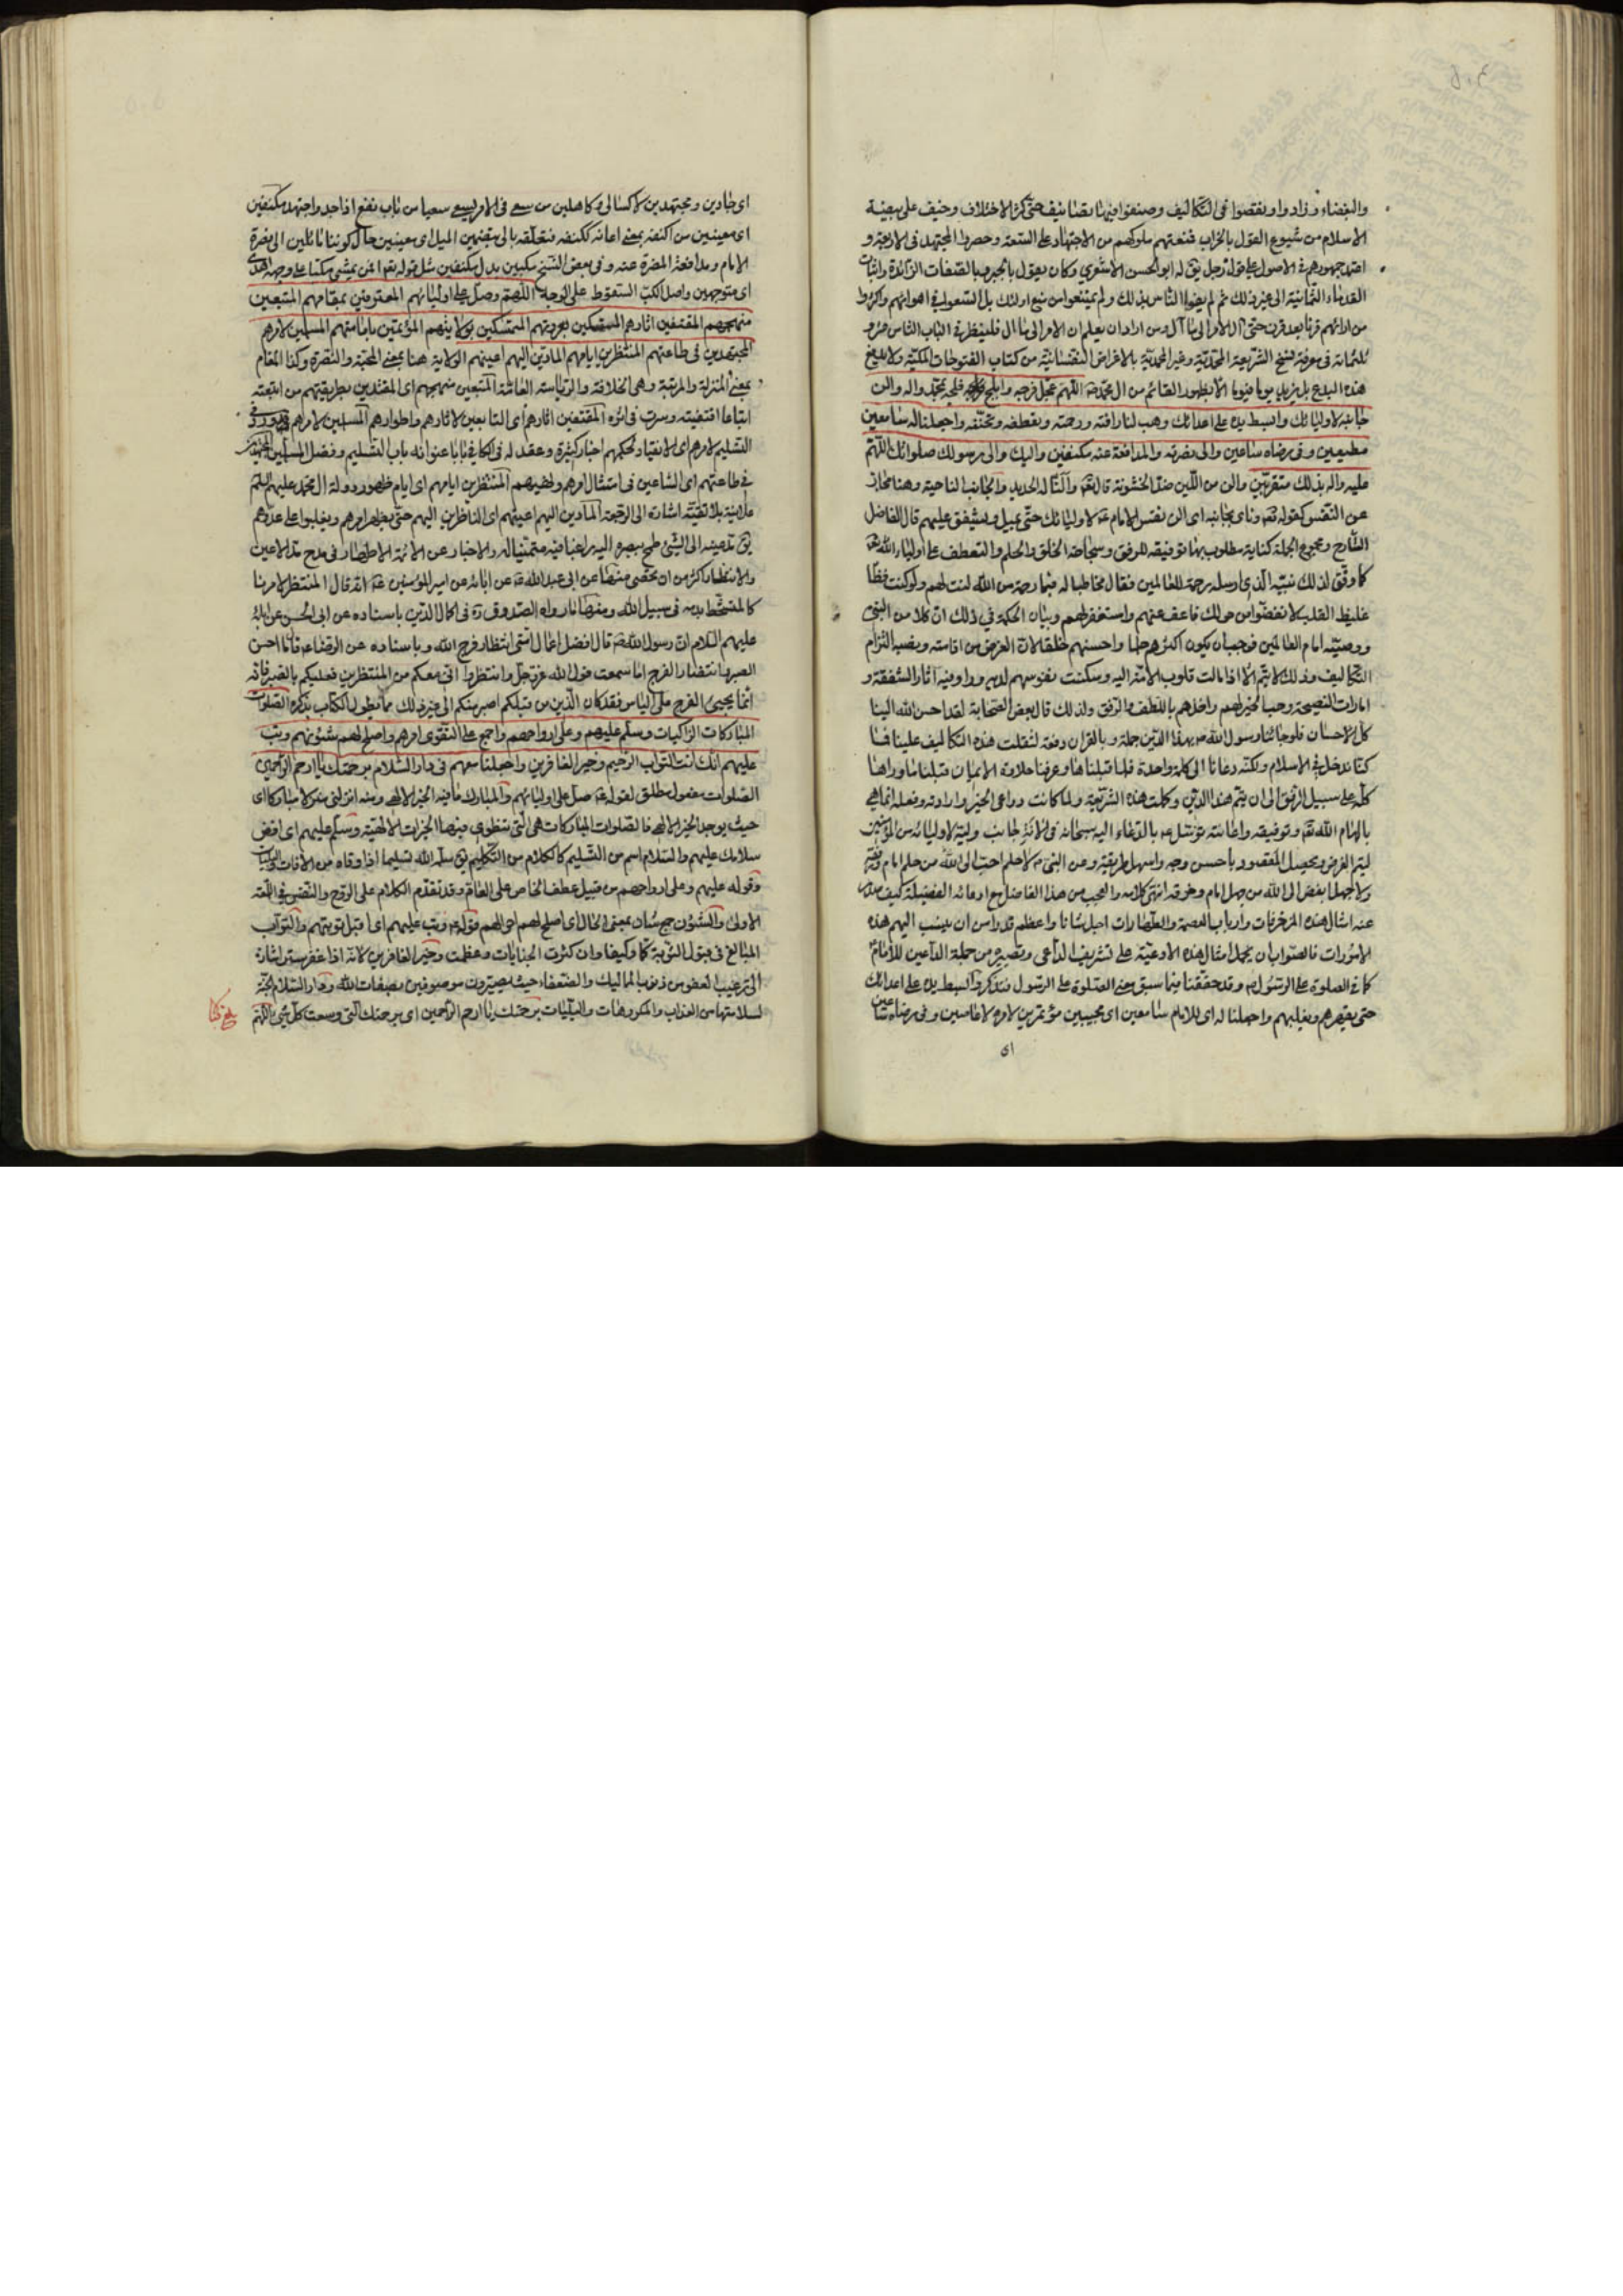 والبغضاء وزادوا ونقصوا في التكاليف وصنفوا فيها تصانيف حتى كثر الاختلاف وخيف على بيضة
الاسلام من شيوع القول بالخراب فمنعتهم ملوكهم من الاجتهاد على السنة وحصروا المجتهد في الاربعة و
اعتمد جمهورهم في الاصول على قول رجل يق له ابو الحسن الاشعري وكان يقول بالجبر وبالصفات الزائدة واثبات
القدماء الثمانية الى غير ذلك ثم لم يضلوا الناس بذلك ولم يمتنعوا من تبع اولئك بل اتبعوا في اهوائهم واكثروا
من ارائهم قرنا بعد قرن حتى آل الامر الى ما آل ومن اراد ان يعلم ان الامر الى ما آل فلينظر في الباب الثامن عشر و
ثلثمائة في معرفة نسخ الشريعة المحمدية وغير المحمدية بالاغراض النفسانية من كتاب الفتوحات المكية ولا يرتفع
هذه البدع بل يزيد يوما فيوما الا بظهور القائم من ال محمد اللهم عجل فرجه بمحمد واله والن
جانبه لاوليائك وابسط يده على اعدائك وهب لنا رافته ورحمته وتعطفه وتحننه واجعلنا له سامعين
مطيعين وفي رضاه ساعين والى نصرته والمدافعة عنه مكنفين واليك والى رسولك صلواتك اللهم
عليه واله بذلك متقربين والن من اللين ضد الخشونة قال تعالى والنا له الحديد والجانب الناحية وهنا مجاز
عن النفس كقوله تعالى وناى بجانبه اى الن نفس الامام لاوليائك حتى يميل ويشفق عليهم قال الفاضل
الشارح ومجموع الجملة كناية مطلوب بها توفيقه للرفق وسجاحة الخلق والحلم والتعطف على اولياء الله
كما وفق لذلك نبيه الذي ارسله رحمة للعالمين فقال مخاطبا له فبما رحمة من الله لنت لهم ولو كنت فظا
غليظ القلب لانفضوا من حولك فاعف عنهم واستغفر لهم وبيان الحكمة في ذلك ان كلا من النبي
ووصيه امام العالمين فوجب ان يكون اكثرهم حلما واحسنهم خلقا لان الغرض من اقامته ونصبه التزام
التكاليف وذلك لا يتم الا اذا مالت قلوب الامة اليه وسكنت نفوسهم لديه وراوا فيه اثار الشفقة و
امارات النصيحة وحب الخير لهم واخذهم باللطف والرفق ولذلك قال بعض الصحابة لقد احسن الله الينا
كل الاحسان فلو جائنا رسول الله بهذا الدين جملة وبالقران دفعة لثقلت هذه التكاليف علينا فما
كنا ندخل في الاسلام ولكنه دعانا الى كلمة واحدة فلما قبلناها وعرفنا حلاوة الايمان قبلنا ما وراها
كله على سبيل الرفق الى ان يتم هذا الدين وكملت هذه الشريعة ولما كانت دواعي الخير وارادته وفعله انما هي
بالهام الله تعالى وتوفيقه واعانته توسل بالدعاء اليه سبحانه في الانة جانب وليه لاوليائه من المؤمنين
ليتم الغرض ويحصل المقصود باحسن وجه واسهل طريقة وعن النبي لا حلم احب الى الله من حلم امام ورفقه
ولا جهل ابغض الى الله من جهل امام وخرقه انتهى كلامه والعجب من هذا الفاضل مع ادعائه الفضيلة كيف صدر
عنه امثال هذه المزخرفات وارباب العصمة والطهارات اجل شانا واعظم قدرا من ان ينسب اليهم هذه
الامورات فالصواب ان يحمل امثال هذه الادعية على تشريف الداعي وتصييره من جملة الداعين للامام
كما في الصلوة على الرسول وقد حققنا فيما سبق معنى الصلوة على الرسول فتذكر وابسط يده على اعدائك
حتى يقهرهم ويغلبهم واجعلنا له اى للامام سامعين اى مجيبين مؤتمرين لامره لا عاصين وفي رضاه ساعين
اى
اى جادين ومجتهدين لا كسالى وكاهلين من سعى في الامر يسعى سعيا من باب نفع اذا جد واجتهد مكنفين
اى معينين من اكنفه بمعنى اعانه ككنفه فتعلقه بالى بتضمين الميل اى معينين حال كوننا مائلين الى نصرة
الامام ومدافعة المضرة عنه وفي بعض النسخ مكبين بدل مكنفين مثل قوله تعالى افمن يمشي مكبا على وجهه اهدى
اى متوجهين واصل الكب السقوط على الوجه اللهم وصل على اوليائهم المعترفين بمقامهم المتبعين
منهجهم المقتفين اثارهم المستمسكين بعروتهم المتمسكين بولايتهم المؤتمين بامامتهم المسلمين لامرهم
المجتهدين في طاعتهم المنتظرين ايامهم المادين اليهم اعينهم الولاية هنا بمعنى المحبة والنصرة وكذا المقام
بمعنى المنزلة والمرتبة وهي الخلافة والرياسة العامة المتبعين منهجهم اى المقتدين بطريقتهم من اتبعته
اتباعا اقتفيته وسرت في اثره المقتفين اثارهم اى التابعين لاثارهم واطوارهم المسلمين لامرهم وورد في
التسليم لامرهم اى الانقياد لحكمهم اخبار كثيرة وعقد له في الكافي بابا عنوانه باب التسليم وفضل المسلمين المجتهدين
في طاعتهم اى الساعين في امتثال امرهم ونهيهم المنتظرين ايامهم اى ايام ظهور دولة ال محمد عليهم السلام
علانية بلا تقية اشارة الى الرجعة المادين اليهم اعينهم اى الناظرين اليهم حتى يظهر امرهم ويغلبوا على عدوهم
يق مد عينه الى الشئ طمح ببصره اليه راغبا فيه متمنيا له والاخبار عن الائمة الاطهار في مدح مد الاعين
والانتظار اكثر من ان يحصى منها عن ابى عبد الله عن ابائه عن امير المؤمنين انه قال المنتظر لامرنا
كالمتشحط بدمه في سبيل الله ومنها ما رواه الصدوق ره في اكمال الدين باسناده عن ابى الحسن عن ابائه
عليهم السلام ان رسول الله قال افضل اعمال امتي انتظار فرج الله وباسناده عن الرضا قال ما احسن
الصبر وانتظار الفرج اما سمعت قول الله عز وجل وانتظروا انى معكم من المنتظرين فعليكم بالصبر فانه
انما يجيئ الفرج على الياس فقد كان الذين من قبلكم اصبر منكم الى غير ذلك مما يطول الكتاب بذكره الصلوات
المباركات الزاكيات وسلم عليهم وعلى ارواحهم واجمع على التقوى امرهم واصلح لهم شئونهم وتب
عليهم انك انت التواب الرحيم وخير الغافرين واجعلنا معهم في دار السلام برحمتك يا ارحم الراحمين
الصلوات مفعول مطلق لقوله صل على اوليائهم والمبارك ما فيه الخير الالهي ومنه انزلني منزلا مباركا اى
حيث يوجد الخير الالهي فالصلوات المباركات هي التي تنطوى فيها الخيرات الالهية وسلم عليهم اى افض
سلامك عليهم والسلام اسم من التسليم كالكلام من التكليم يق سلمه الله تسليما اذا وقاه من الافات والبليات
وقوله عليهم وعلى ارواحهم من قبيل عطف الخاص على العام وقد تقدم الكلام على الروح والنفس في اللمعة
الاولى والشئون جمع شان بمعنى الحال اى اصلح لهم احوالهم قوله وتب عليهم اى اقبل توبتهم والتواب
المبالغ في قبول التوبة كما وكيفا وان كثرت الجنايات وعظمت وخير الغافرين لانه اذا غفر ستر اشارة
الى ترغيب العفو من ذنوب المماليك والضعفاء حيث يصيرون موصوفين بصفات الله ودار السلام الجنة
لسلامتها من العذاب والمكروهات والبليات برحمتك يا ارحم الراحمين اى برحمتك التي وسعت كل شئ اللهم